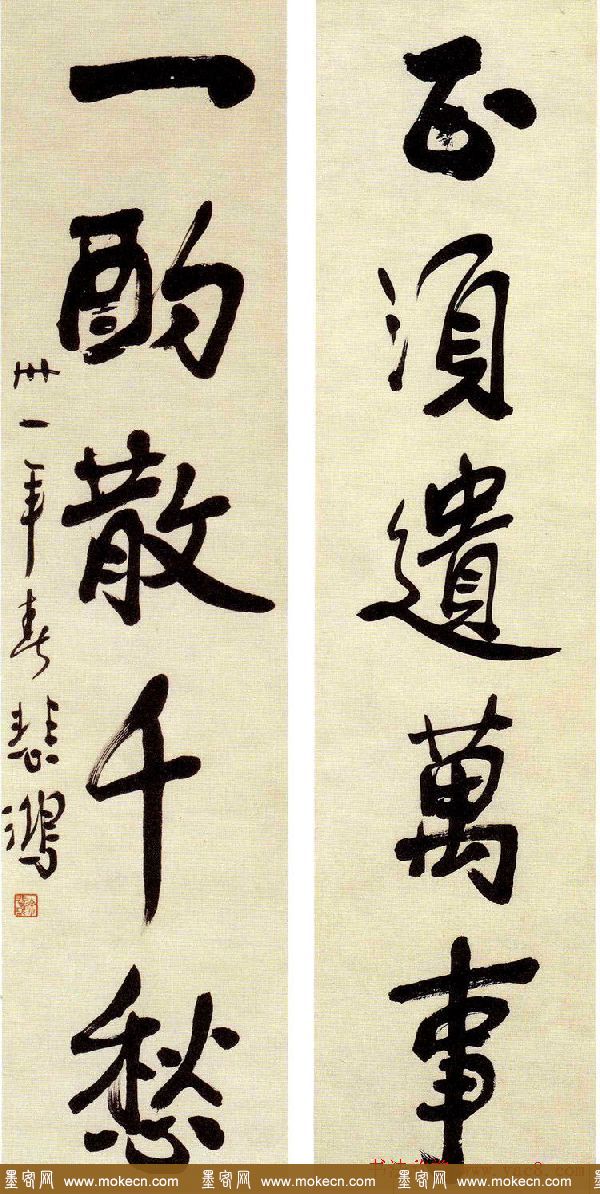 正须遣萬事
一酌散千愁
卅一年春悲鴻
書法 www.yac8.com
墨客网 www.mokecn.com 墨客网 www.mokecn.com 墨客网 www.mokecn.com